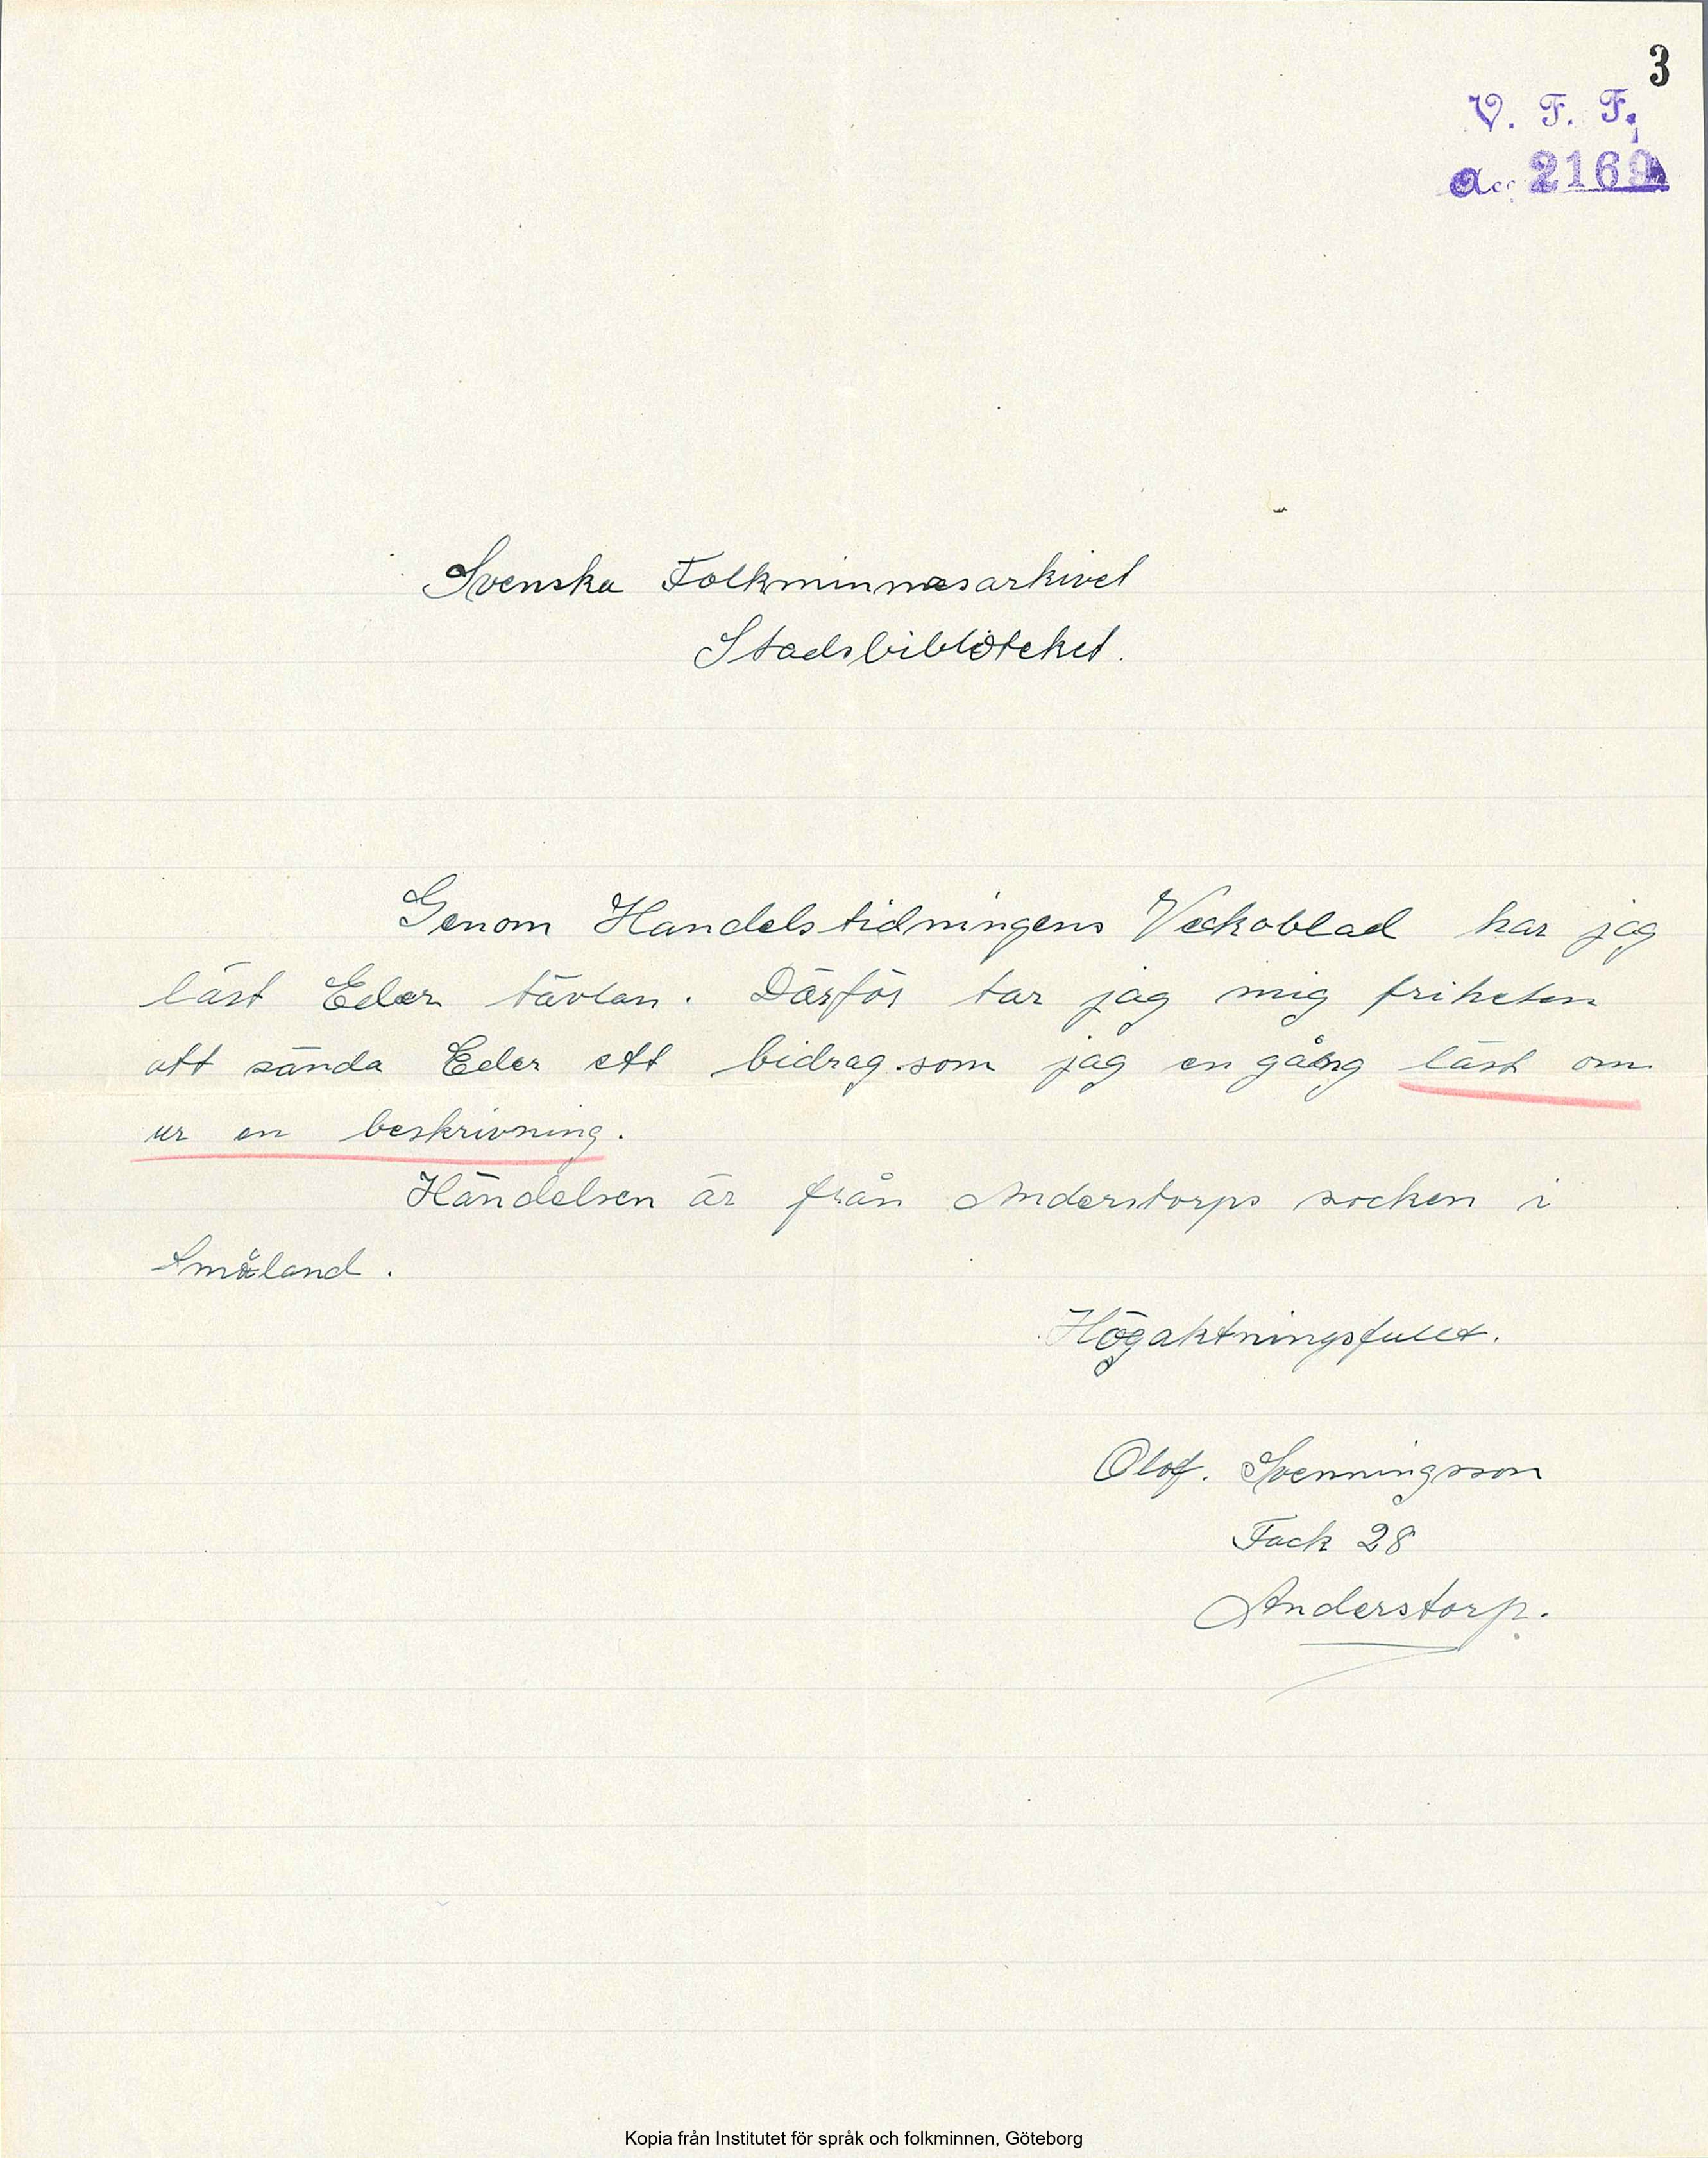 3
V. F. F.
acc. 2169
Svenska Folkminnesarkivet
Stadsbiblioteket.
Genom Handelstidningens Veckoblad har jag
läst Eder tävlan. Därför tar jag mig friheten
att sända Eder ett bidrag som jag en gång läst om
ur en beskrivning.
Händelsen är från Anderstorps socken i
Småland.
Högaktningsfullt.
Olof. Svenningsson
Fack 28
Anderstorp.
Kopia från Institutet för språk och folkminnen, Göteborg